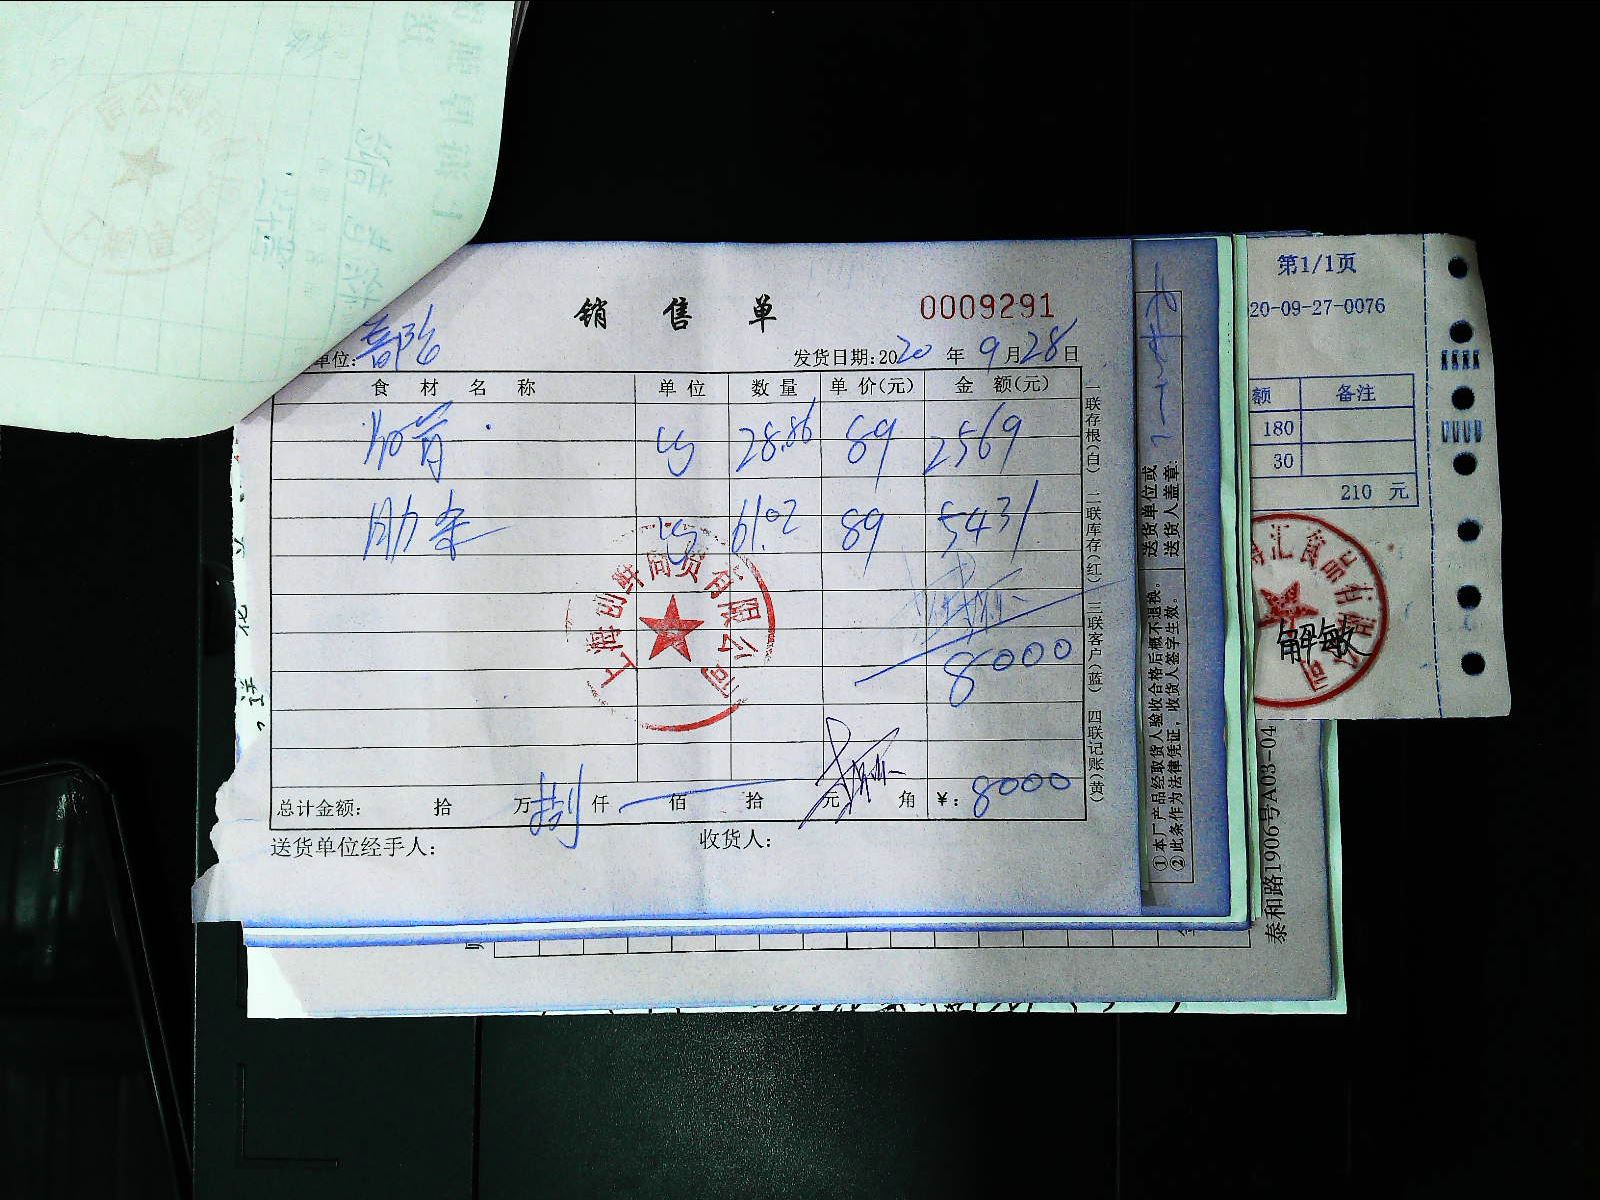 销 售 单 0009291
单位: 部队 发货日期:2020 年 9 月 28 日
食 材 名 称 单 位 数 量 单 价(元) 金 额(元)
28.86 89 2569
肋条 61.02 89 5431
8000
总计金额: 拾 万 捌 仟 佰 拾 元 角 ¥: 8000
送货单位经手人: 收货人:
一联存根(白) 二联库存(红) 三联客户(蓝) 四联记账(黄)
上海创鲜商贸有限公司
送货单位或
送货人盖章:
①本厂产品经取货人验收合格后概不退换。
②此条作为法律凭证,收货人签字生效。
第1/1页
20-09-27-0076
额 备注
180
30
210 元
汇食品有限公司
解敏
泰和路1906号A03-04